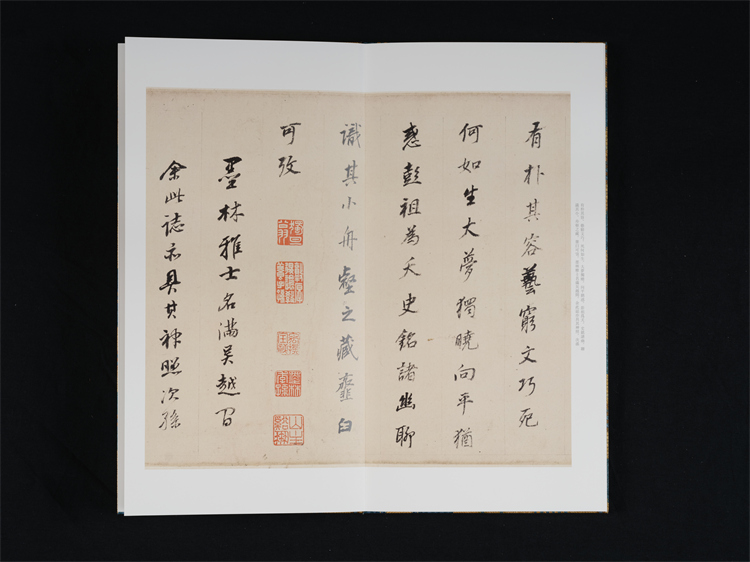 有朴其容藝窮文巧死
何如生大夢獨曉向平猶
惑彭祖為夭史銘諸幽聊
識其小舟壑之藏虀臼
可攷
墨林雅士名滿吳越間
余此誌亦具其神照次孫